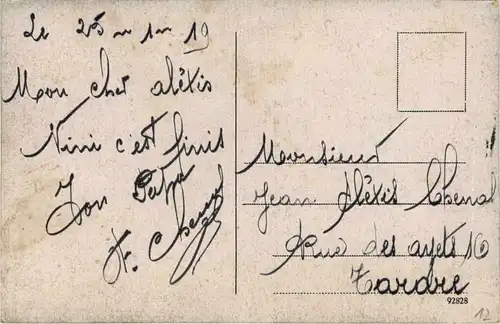 Le 25 - 1 - 19
Mon cher Aléxis
Nini c'est finis
Ton
F. Chenal
Monsieur
Jean Aléxis Chenal
Rue des ayets 16
Tardre
92828
12